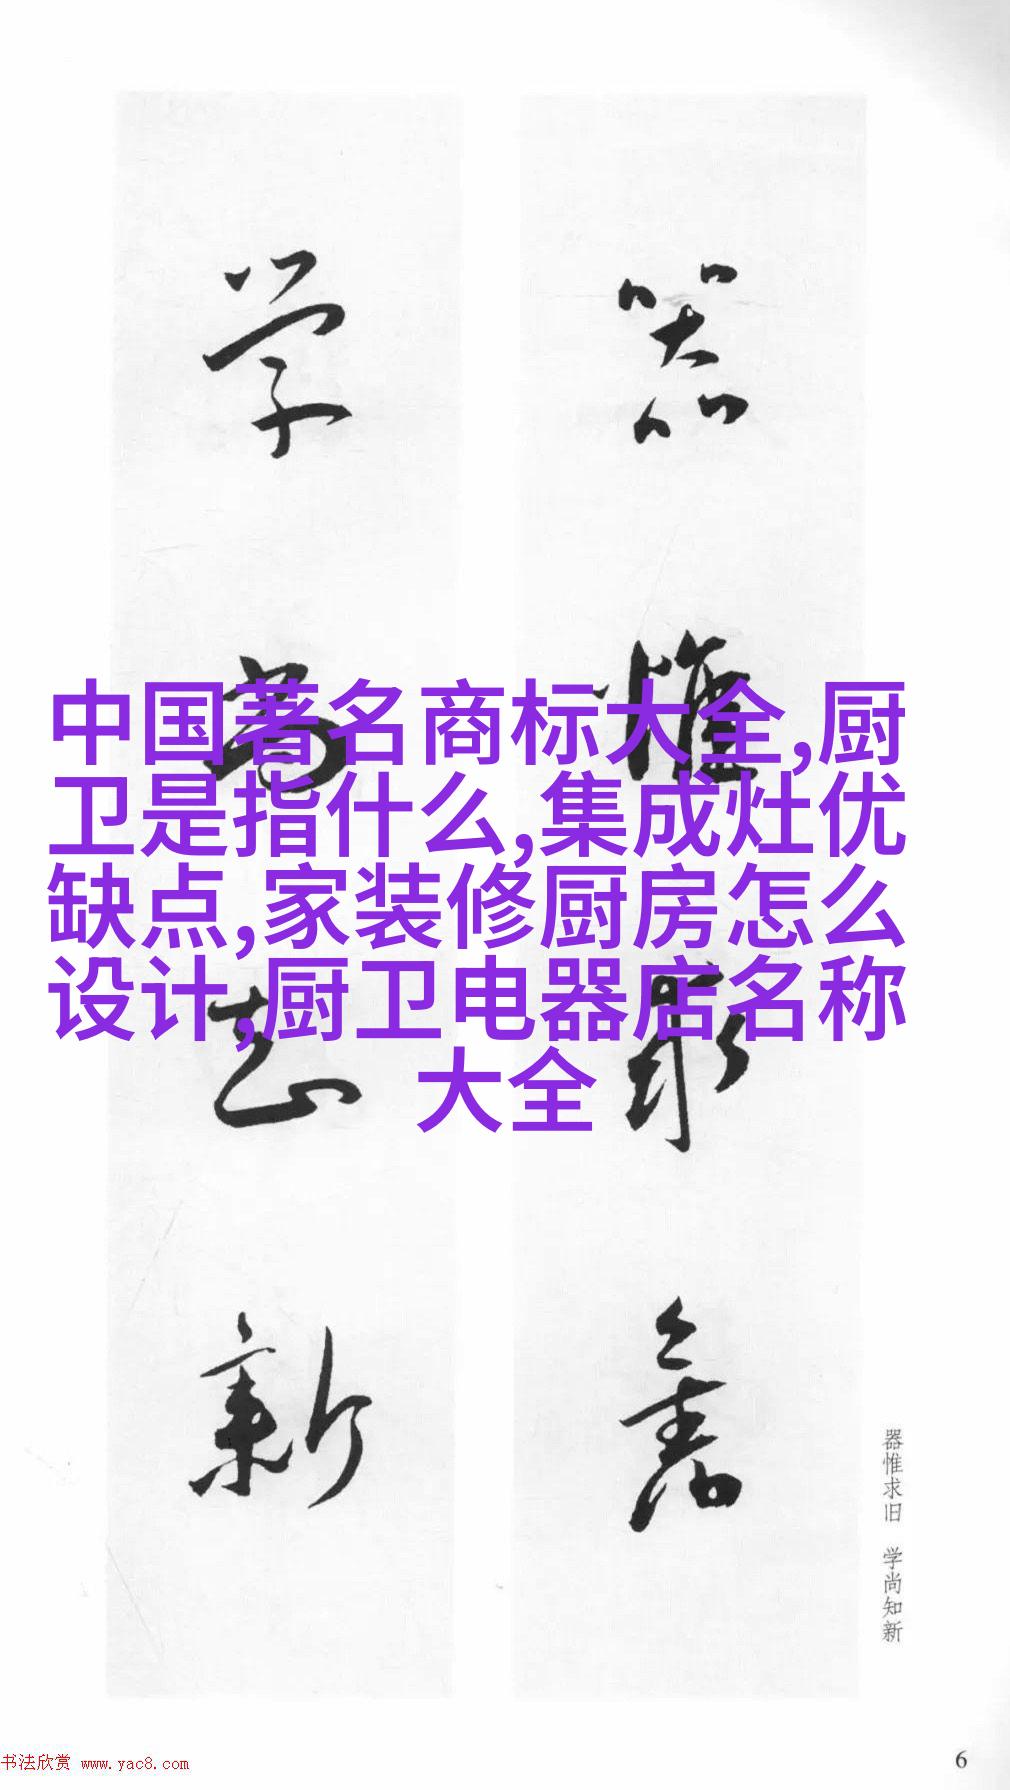 器惟求舊
学尚知新
中国著名商标大全,厨
卫是指什么,集成灶优
缺点,家装修厨房怎么
设计,厨卫电器店名称
大全
器惟求旧 学尚知新
书法欣赏 www.yac8.com
6